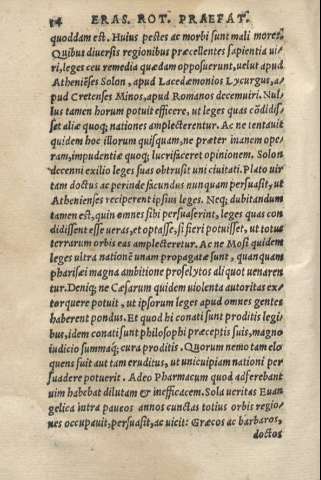 14 ERAS. ROT. PRAEFAT.
quoddam est. Huius pestes ac morbi sunt mali mores.
Quibus diuersis regionibus præcellentes sapientia ui-
ri, leges ceu remedia quædam opposuerunt, uelut apud
Atheniẽses Solon, apud Lacedæmonios Lycurgus, a-
pud Cretenses Minos, apud Romanos decemuiri. Nul-
lus tamen horum potuit efficere, ut leges quas cõdidis-
set aliæ quoq; nationes amplecterentur. Ac ne tentauit
quidem hoc illorum quisquam, ne præter inanem ope-
ram, impudentiæ quoq; lucrifaceret opinionem. Solon
decenni exilio leges suas obtrusit uni ciuitati. Plato uir
tam doctus ac perinde facundus nunquam persuasit, ut
Athenienses reciperent ipsius leges. Neq; dubitandum
tamen est, quin omnes sibi persuaserint, leges quas con
didissent esse ueras, et optasse, si fieri potuisset, ut totus
terrarum orbis eas amplecteretur. Ac ne Mosi quidem
leges ultra nationẽ unam propagatæ sunt, quanquam
pharisæi magna ambitione proselytos aliquot uenaren
tur. Deniq; ne Cæsarum quidem uiolenta autoritas ex-
torquere potuit, ut ipsorum leges apud omnes gentes
haberent pondus. Et quod hi conati sunt proditis legi-
bus, idem conati sunt philosophi præceptis suis, magno
iudicio summaq; cura proditis. Quorum nemo tam elo
quens fuit aut tam eruditus, ut unicuipiam nationi per
suadere potuerit. Adeo Pharmacum quod adferebant
uim habebat dilutam & inefficacem. Sola ueritas Euan
gelica intra paucos annos cunctas totius orbis regio-
nes occupauit, persuasit, ac uicit: Græcos ac barbaros,
doctos